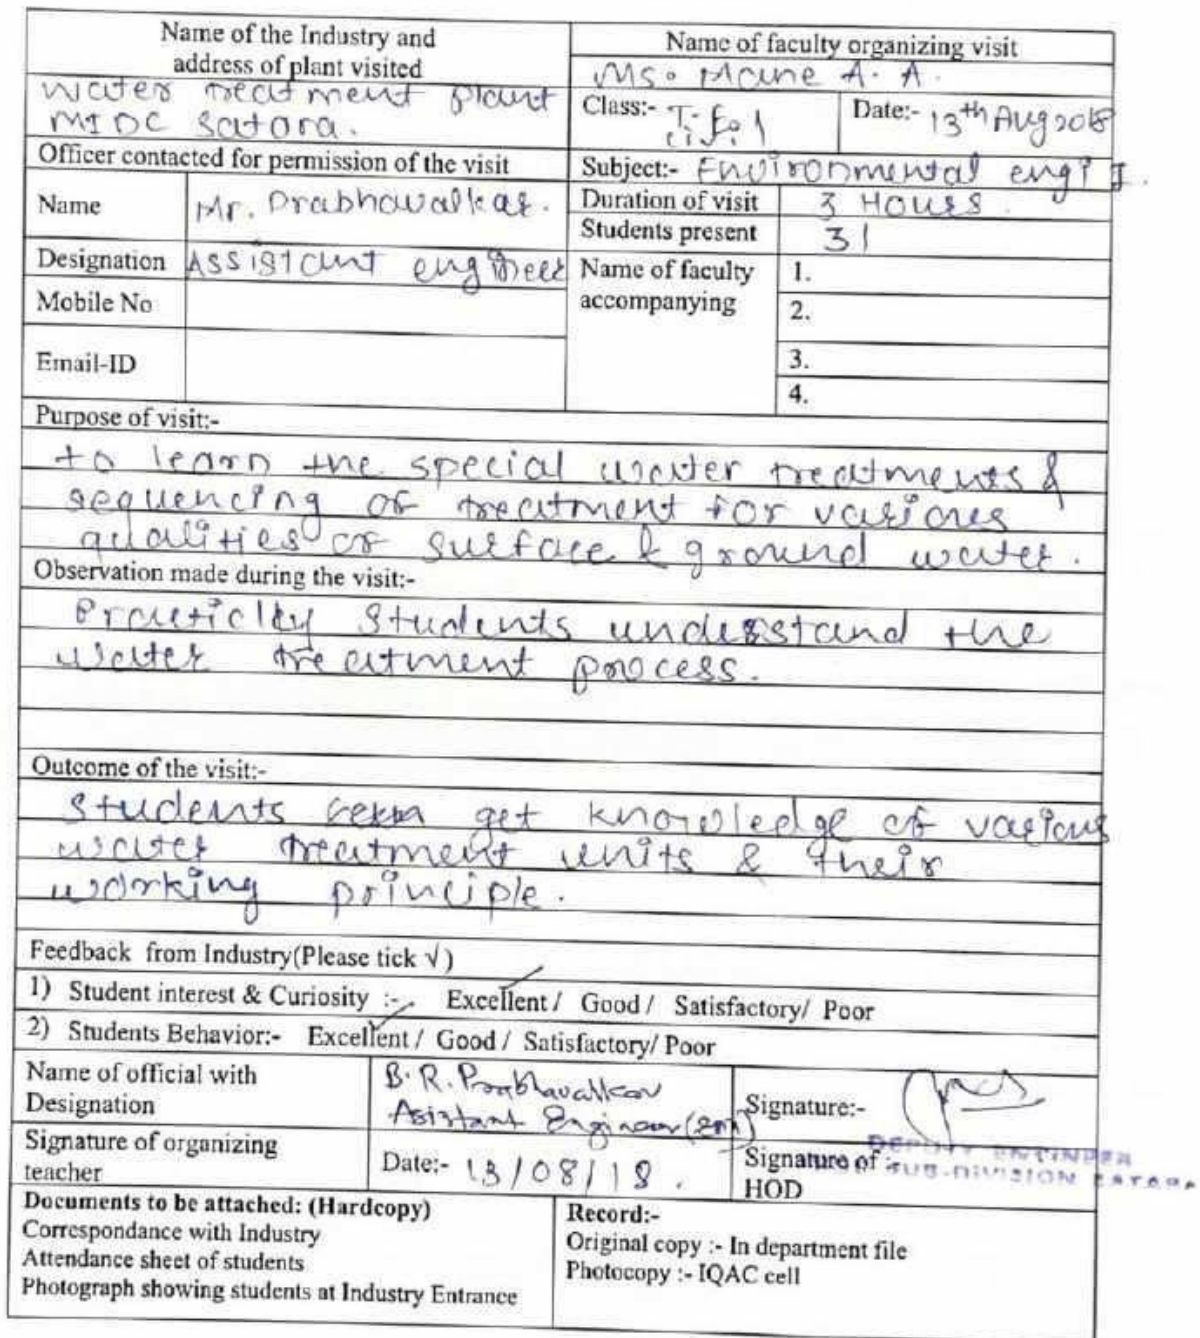 Name of the Industry and
address of plant visited
Water treatment plant
MIDC Satara.
Name of faculty organizing visit
Ms. Mane A. A.
Class:- T.E. Civil
Date:- 13th Aug 2018
Officer contacted for permission of the visit
Subject:- Environmental engg I.
Name Mr. Prabhavalkar.
Duration of visit 3 Hours.
Students present 31
Designation Assistant engineer
Mobile No
Email-ID
Name of faculty
accompanying
1.
2.
3.
4.
Purpose of visit:-
to learn the special water treatments &
sequencing of treatment for various
qualities of surface & ground water.
Observation made during the visit:-
Practiclly students understand the
water treatment process.
Outcome of the visit:-
Students get knowledge of various
water treatment units & their
working principle.
Feedback from Industry(Please tick √)
1) Student interest & Curiosity :- Excellent / Good / Satisfactory/ Poor
2) Students Behavior:- Excellent / Good / Satisfactory/ Poor
Name of official with
Designation
B. R. Prabhavalkar
Asistant Engineer
Signature:-
Signature of organizing
teacher
Date:- 13/08/18.
Signature of :-
HOD
DEPUTY ENGINEER
SUB-DIVISION SATARA
Documents to be attached: (Hardcopy)
Correspondance with Industry
Attendance sheet of students
Photograph showing students at Industry Entrance
Record:-
Original copy :- In department file
Photocopy :- IQAC cell